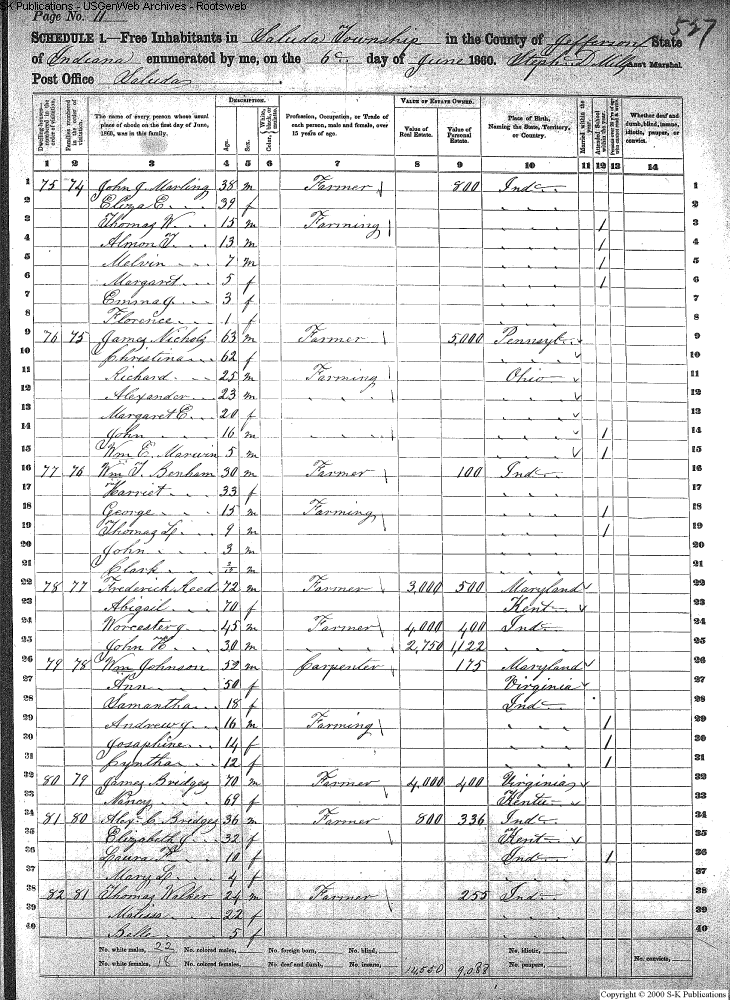 S-K Publications - USGenWeb Archives - Rootsweb
Page No. 11
527
SCHEDULE 1.—Free Inhabitants in Saluda Township in the County of Jefferson State
of Indiana enumerated by me, on the 6th day of June 1860. Ass't Marshal
Post Office Saluda
DESCRIPTION. VALUE OF ESTATE OWNED.
Dwelling-houses—numbered in the order of visitation. Families numbered in the order of visitation. The name of every person whose usual place of abode on the first day of June, 1860, was in this family. Age. Sex. Color, White, black, or mulatto. Profession, Occupation, or Trade of each person, male and female, over 15 years of age. Value of Real Estate. Value of Personal Estate. Place of Birth, Naming the State, Territory, or Country. Married within the year. Attended School within the year. Whether deaf and dumb, blind, insane, idiotic, pauper, or convict.
1 2 3 4 5 6 7 8 9 10 11 12 13 14
1 75 74 John J. Marling 38 m Farmer 800 Ind 1
2 Eliza E. 39 f 2
3 Thomas W. 15 m Farming / 3
4 Almon T. 13 m / 4
5 Melvin 7 m / 5
6 Margaret 5 f / 6
7 Emma J 3 f 7
8 Florence 1 f 8
9 76 75 James Nichols 63 m Farmer 5,000 Pennsyl 9
10 Christina 62 f 10
11 Richard 25 m Farming Ohio 11
12 Alexander 23 m 12
13 Margaret E. 20 f 13
14 John 16 m / 14
15 Wm E. Marwin 5 m / 15
16 77 76 Wm T. Benham 30 m Farmer 100 Ind 16
17 Harriet 33 f 17
18 George 15 m Farming / 18
19 Thomas L. 9 m / 19
20 John 3 m 20
21 Clark m 21
22 78 77 Frederick Reed 72 m Farmer 3,000 500 Maryland 22
23 Abigail 70 f Kent 23
24 Worcester J 45 m Farmer 4,000 400 Ind 24
25 John H 30 m 2,750 1,122 25
26 79 78 Wm Johnson 52 m Carpenter 175 Maryland 26
27 Ann 50 f Virginia 27
28 Samantha 18 f Ind 28
29 Andrew J 16 m Farming / 29
30 Josaphine 14 f / 30
31 Cyntha 12 f / 31
32 80 79 James Bridges 70 m Farmer 4,000 400 Virginia 32
33 Nancy 69 f Kentu 33
34 81 80 Alex C. Bridges 36 m Farmer 800 336 Ind 34
35 Elizabeth J 32 f Kent 35
36 Laura 10 f Ind / 36
37 Mary L. 4 f 37
38 82 81 Thomas Walker 24 m Farmer 255 Ind 38
39 Malissa 22 f 39
40 Belle 5 f 40
No. white males, 22 No. colored males, No. foreign born, No. blind, No. idiotic,
No. white females, 18 No. colored females, No. deaf and dumb, No. insane, 14,550 9,088 No. paupers, No. convicts,
Copyright © 2000 S-K Publications